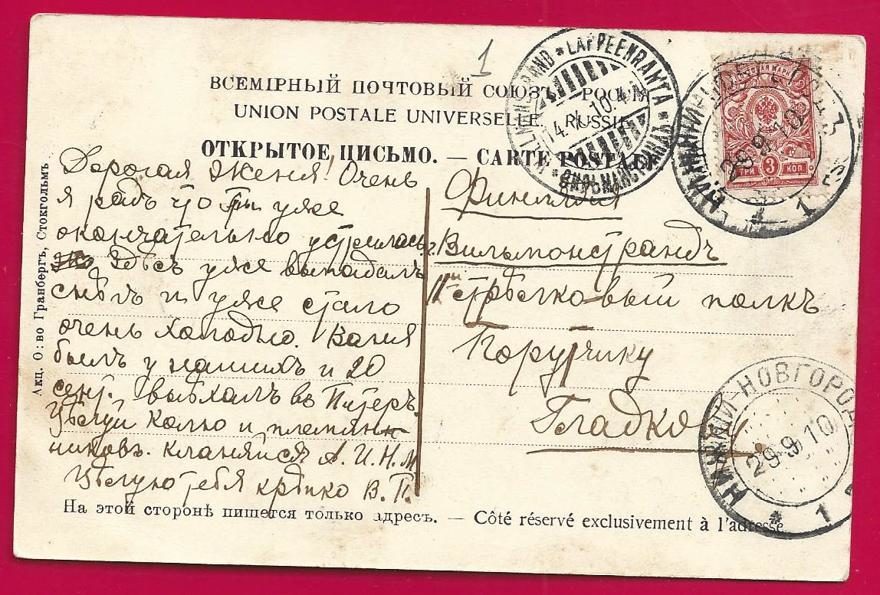 1
ВСЕМІРНЫЙ ПОЧТОВЫЙ СОЮЗЪ. РОССІЯ
UNION POSTALE UNIVERSELLE. RUSSIE
ОТКРЫТОЕ ПИСЬМО. — CARTE POSTALE
Дорогая Женя! Очень
я радъ что ты уже
окончательно устроилась.
Здѣсь уже выпадалъ
снѣгъ и уже стало
очень холодно. Ваня
былъ у нашихъ и 20
сент. выѣхалъ въ Питеръ.
Цѣлуй Колю и племян-
никовъ. Кланяйся А.И.Н.М.
Цѣлую тебя крѣпко В. П.
Финляндія
Вильманстрандъ
стрѣлковый полкъ
Поручику
Гладко
На этой сторонѣ пишется только адресъ. — Côté réservé exclusivement à l'adresse
Акц. О:во Гранбергъ, Стокгольмъ
LAPPEENRANTA
ВИЛЬМАНСТРАНДЪ
14.X.10
3
ТРИ КОП
29 9 10
НИЖНІЙ-НОВГОРОД
29 9 10
1